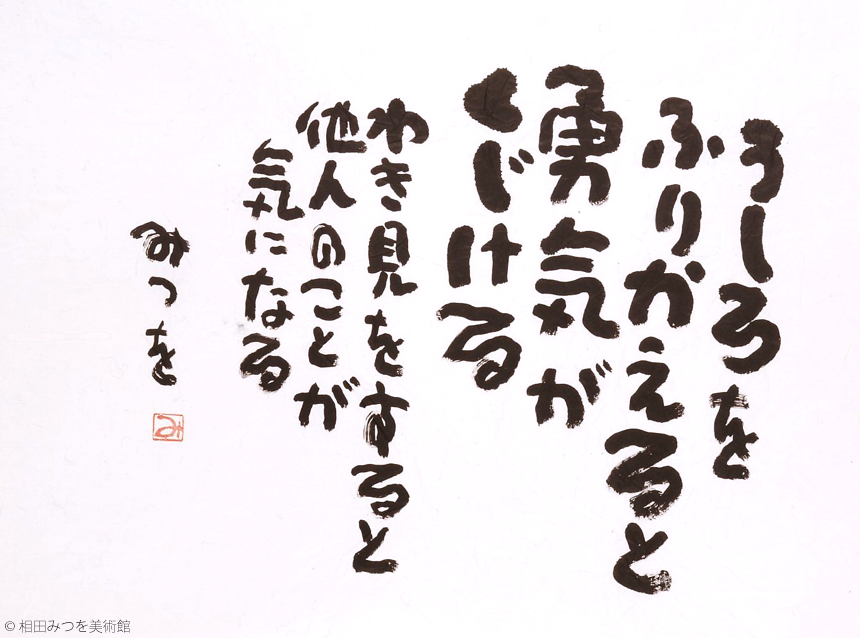 うしろを
ふりかえると
勇気が
くじける
わき見をすると
他人のことが
気になる
みつを
み
© 相田みつを美術館